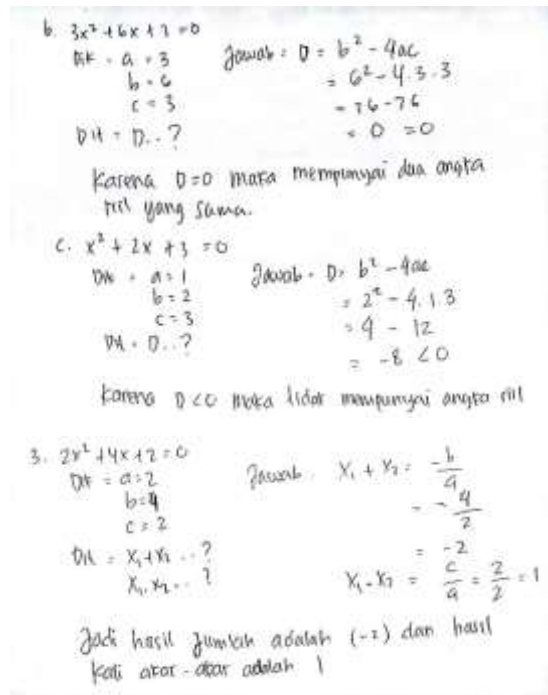 b. 3x² + 6x + 3 = 0
Dik = a = 3
b = 6
c = 3
Dit = D..?
Jawab = D = b² - 4ac
= 6² - 4.3.3
= 36-36
= 0 = 0
Karena D=0 maka mempunyai dua angka
riil yang sama.
c. x² + 2x + 3 = 0
Dik = a = 1
b = 2
c = 3
Dit = D..?
Jawab = D = b² - 4ac
= 2² - 4.1.3
= 4 - 12
= -8 < 0
Karena D<0 maka tidak mempunyai angka riil
3. 2x² + 4x + 2 = 0
Dik = a = 2
b = 4
c = 2
Dit = X₁ + X₂ ..?
X₁.X₂..?
Jawab. X₁ + X₂ = -b/a
= -4/2
= -2
X₁.X₂ = c/a = 2/2 = 1
Jadi hasil jumlah adalah (-2) dan hasil
kali akar-akar adalah 1